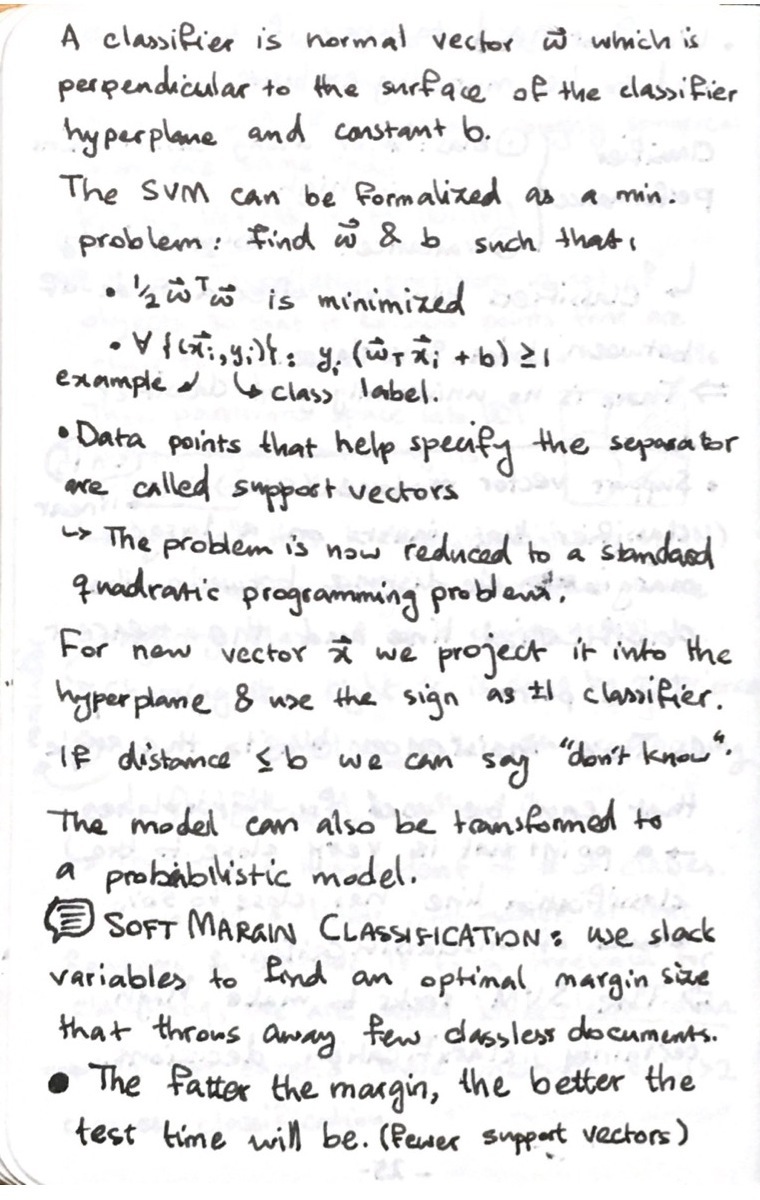 A classifier is normal vector w⃗ which is
perpendicular to the surface of the classifier
hyperplane and constant b.
The SVM can be formalized as a min.
problem: find w⃗ & b such that:
• 1/2 w⃗ᵀw⃗ is minimized
• ∀ {(x⃗ᵢ, yᵢ)} : yᵢ (w⃗ᵀ x⃗ᵢ + b) ≥ 1
example ↲ ↳ class label.
• Data points that help specify the separator
are called support vectors
↳ The problem is now reduced to a standard
quadratic programming problem.
For new vector x⃗ we project it into the
hyperplane & use the sign as ±1 classifier.
If distance ≤ b we can say "don't know".
The model can also be transformed to
a probablistic model.
SOFT MARGIN CLASSIFICATION: we slack
variables to find an optimal margin size
that throws away few classless documents.
• The fatter the margin, the better the
test time will be. (fewer support vectors)
- 25-